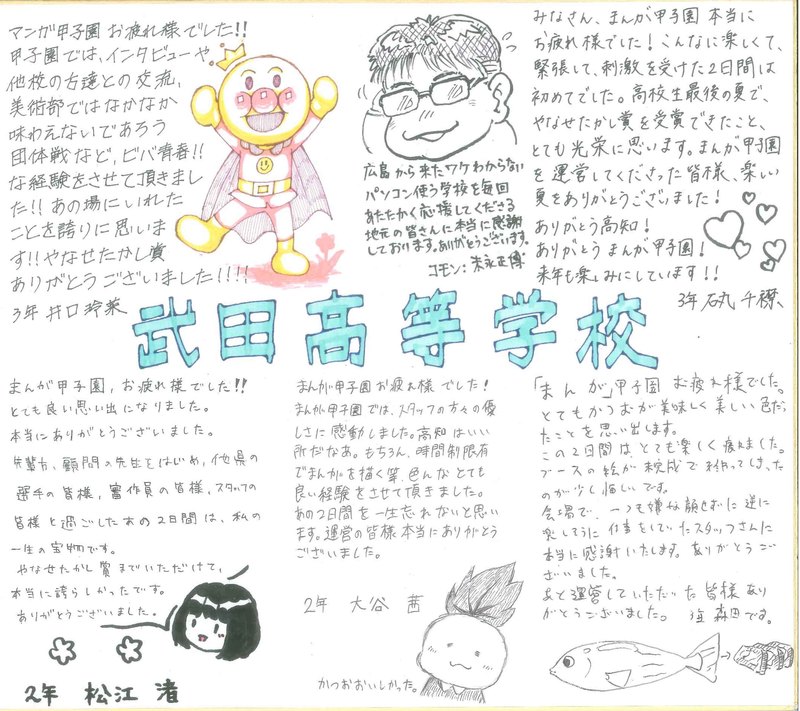 マンガ甲子園 お疲れ様でした!!
甲子園では、インタビューや
他校の方達との交流、
美術部ではなかなか
味わえないであろう
団体戦など、ビバ青春!!
な経験をさせて頂きまし
た!! あの場にいれた
ことを誇りに思いま
す!! やなせたかし賞
ありがとうございました!!!!
3年 井口 玲菜
広島から来たワケわからない
パソコン使う学校を毎回
あたたかく応援してくださる
地元の皆さんに本当に感謝
しております。ありがとうございます。
コモン:末永正博
みなさん、まんが甲子園 本当に
お疲れ様でした! こんなに楽しくて、
緊張して、刺激を受けた2日間は
初めてでした。高校生最後の夏で、
やなせたかし賞を受賞できたこと、
とても光栄に思います。まんが甲子園
を運営してくださった皆様、楽しい
夏をありがとうございました!
ありがとう高知!
ありがとうまんが甲子園!
来年も楽しみにしています!!
3年 石丸 千穂
武田高等学校
まんが甲子園、お疲れ様でした!!
とても良い思い出になりました。
本当にありがとうございました。
先輩方、顧問の先生をはじめ、他県の
選手の皆様、審査員の皆様、スタッフの
皆様と過ごしたあの2日間は、私の
一生の宝物です。
やなせたかし賞までいただけて、
本当に誇らしかったです。
ありがとうございました。
2年 松江 渚
まんが甲子園お疲れ様でした!
まんが甲子園では、スタッフの方々の優
しさに感動しました。高知はいい
所だなあ。もちろん、時間制限有
でまんがを描く等、色んなとても
良い経験をさせて頂きました。
あの2日間を一生忘れないと思い
ます。運営の皆様本当にありがとう
ございました。
2年 大谷 茜
かつおおいしかった。
「まんが」甲子園 お疲れ様でした。
とてもかつおが美味しく美しい色だっ
たことを思い出します。
この2日間はとても楽しく疲れました。
ブースの絵が線成で終わってしまった
のが少し悔しいです。
会場で、いつも嫌な顔せずに逆に
楽しそうに仕事をしていたスタッフさんに
本当に感謝いたします。ありがとうご
ざいました。
あと運営していただいた皆様あり
がとうございました。 森田です。